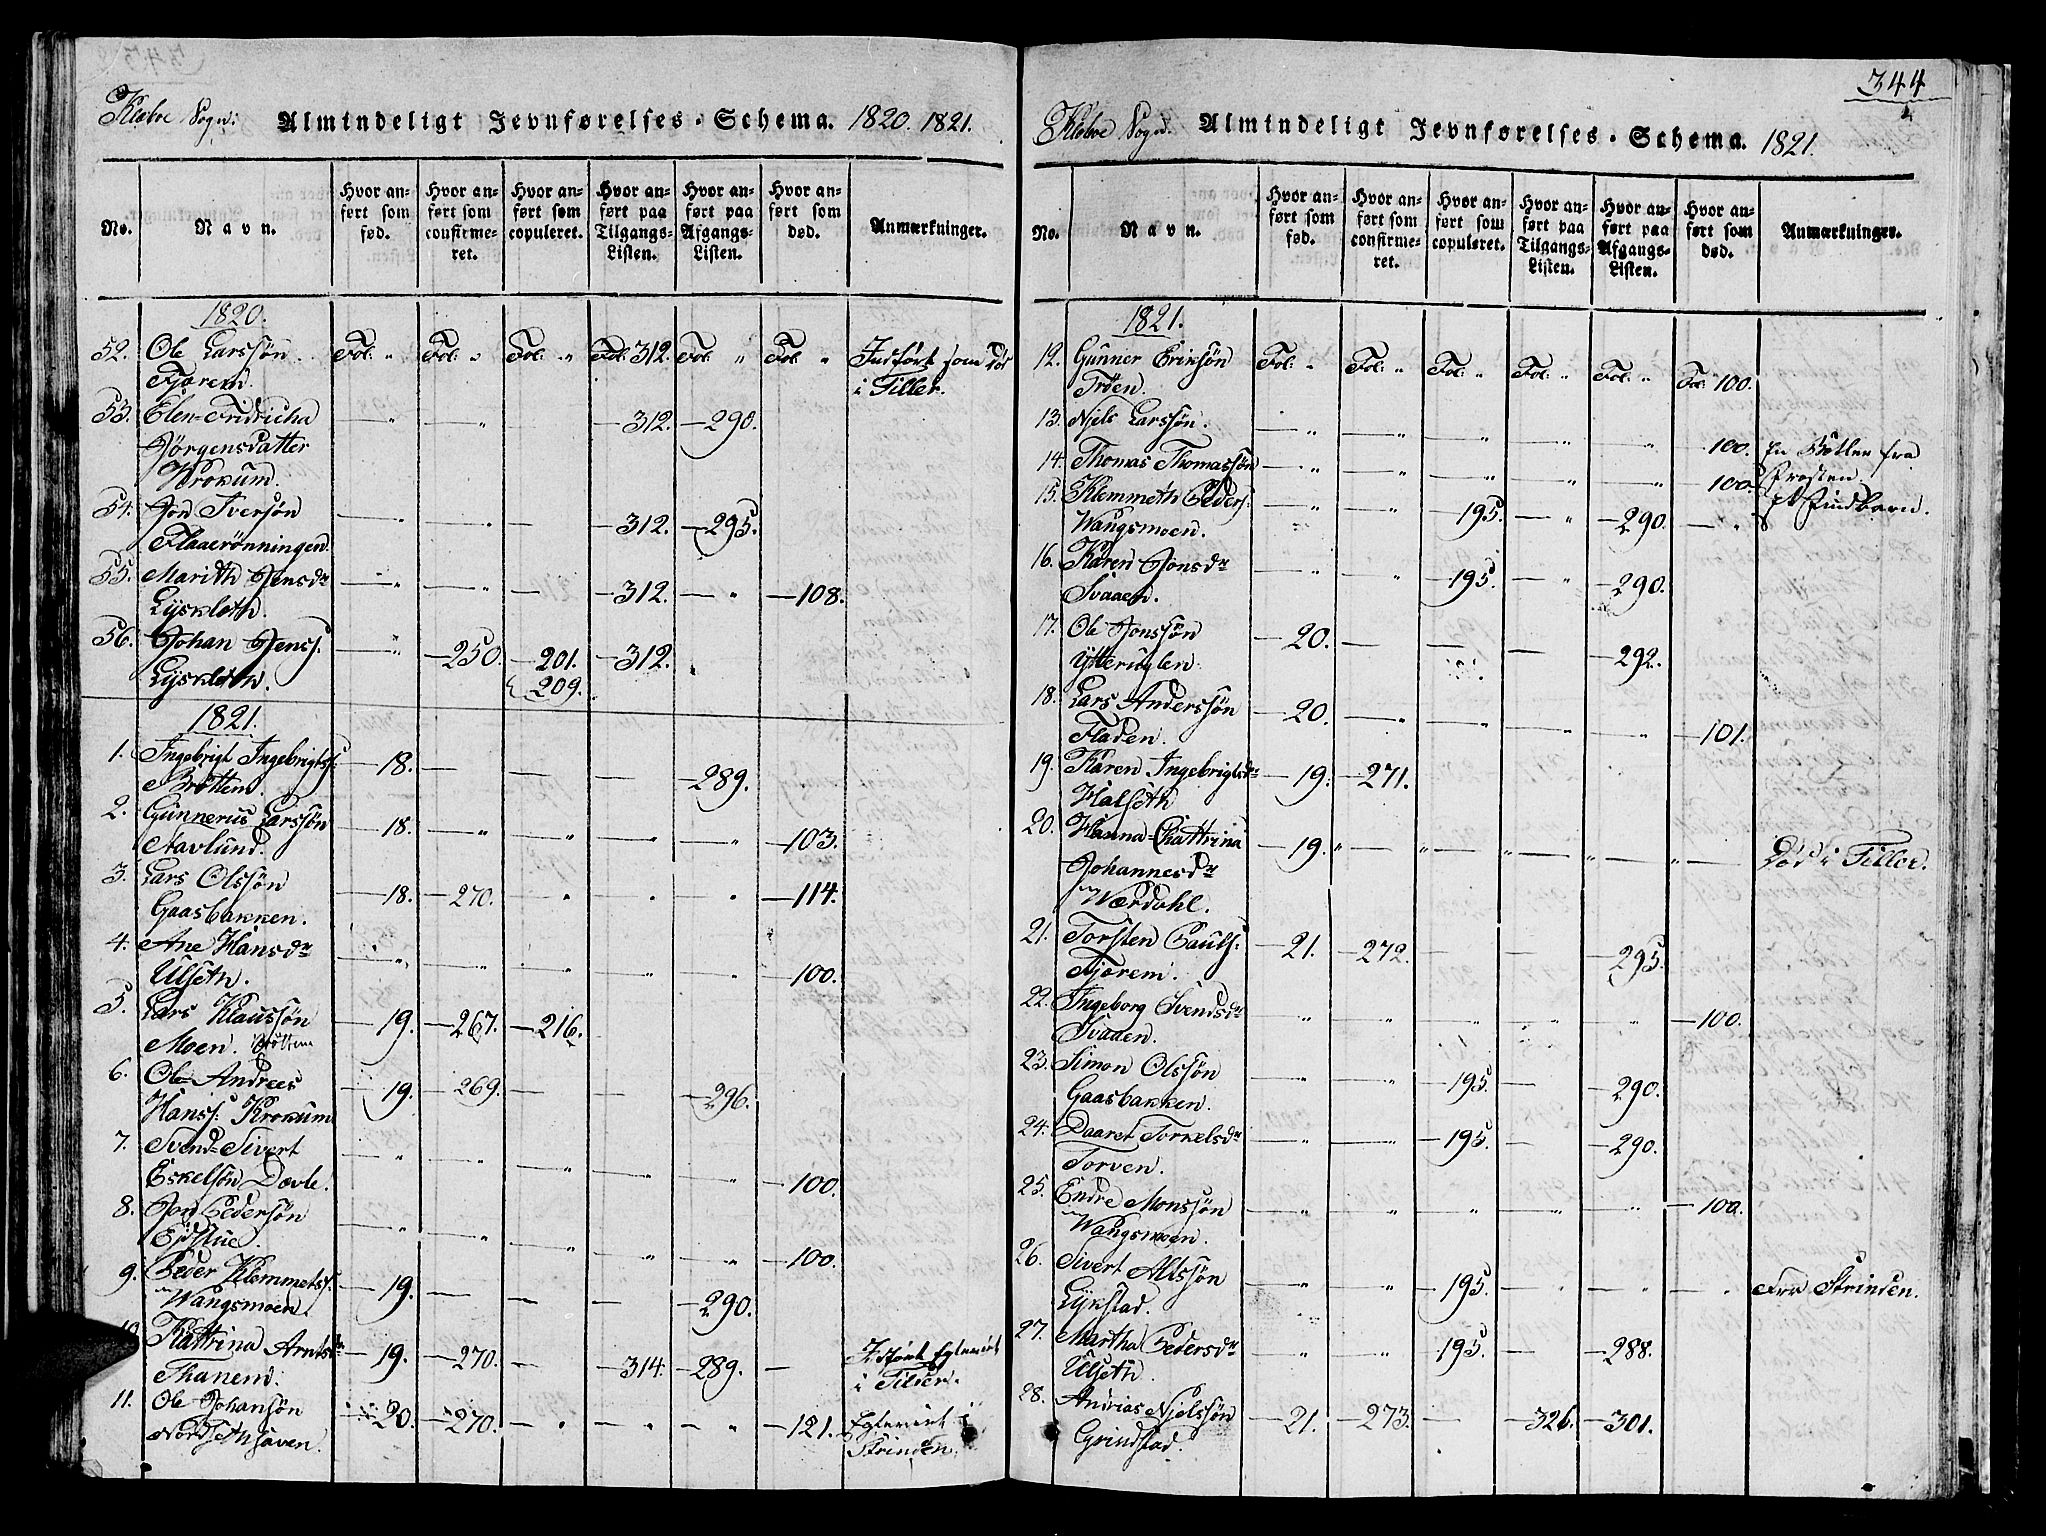 Klæboe Sogn: Almindeligt Jevnførelses-Schema. 1820. 1821.
No.
Navn.
Hvor anført som fød.
Hvor anført som confirmeret.
Hvor anført som copuleret.
Hvor anført paa Tilgangs-Listen.
Hvor anført paa Afgangs-Listen.
Hvor anført som død.
Anmærkninger.
1820.
52. Ole Larssøn Fol: " Fol: " Fol: " Fol: 312. Fol: " Fol: " Indført som død
Fjærem. i Tiller.
53. Elen Fridricha — " — " — 312. — 290.
Jørgensdatter
Krokum.
54. Jon Iversøn — " — " — — 312. — 295.
Flaaerønningen.
55. Marith Jensdr — " — " — — 312. — " — 108.
Lyskloth.
56. Johan Jenss: — " — 250. — 201. — 312.
Lyskloth. 209.
1821.
1. Ingebrigt Ingebrigtss: — 18. — — — — 289.
Brøttem.
2. Gunnerus Larssøn — 18. — " — " — " — " — 103.
Havlund.
3. Lars Olssøn — 18. — 270. — " — " — " — 114.
Gaasbakken.
4. Ane Hansdr — " — " — " — " — " — 100.
Ulseth.
5. Lars Klaussøn — 19. — 267. — 216.
Moen.
6. Ole Andreas — 19. — 269. — — — 296.
Hanss: Krokum
7. Svend Sivert — " — " — " — " — " — 100.
Eskelsøn Dævle.
8. Jon Pedersøn — " — " — " — " — 100.
Eidstue.
9. Peder Klemmetss: — 19. — — — — 290.
Wangsmoen
10. Kattrina Arntsdr — 19. — 270. — — 314. — 289. — Idført Egteviet
Thanem. i Tiller.
11. Ole Johansøn — 20. — 270. — " — " — " — 121. Egteviet i
Nordsethaven. Strinden.
344
Klæboe Sogn. Almindeligt Jevnførelses-Schema. 1821.
No.
Navn.
Hvor anført som fød.
Hvor anført som confirmeret.
Hvor anført som copuleret.
Hvor anført paa Tilgangs-Listen.
Hvor anført paa Afgangs-Listen.
Hvor anført som død.
Anmærkninger.
1821.
12. Gunner Eriksøn Fol: " Fol: " Fol: " Fol: " Fol: " Fol: 100.
Trøen.
13. Njels Larssøn. — " — " — " — " — " 100. En fra
14. Thomas Thomassøn — " — " — " — " — " — 100. Prosten.
15. Klemmeth Peders: — " — " — 195. — " — 290. — "
Wangsmoen.
16. Karen Jonsdr — " — " — 195. — " — 290.
Svaaen.
17. Ole Jonssøn — 20. — — — — 292.
Ytteruglen.
18. Lars Anderssøn — 20. — " — " — " — " — 101.
Fladen.
19. Karen Ingebrigtsdr — 19. — 271.
Halseth
20. Hanna Chattrina — 19. " — " — " — " — " — Død i Tiller.
Johannesdr
Wærdahl.
21. Torsten Pauls: — 21. — 272. — — — 295.
Fjærem.
22. Ingeborg Svendsdr — " — " — " — " — " — 100.
Svaaen.
23. Simon Olssøn — " — " — 195. — — 290.
Gaasbakken.
24. Daaret Torkelsdr — " — " — 195. — — 290.
Torven.
25. Endre Monssøn — " — " — " — " — " — 100.
Wangsmoen.
26. Sivert Altssøn — " — " — 195. — " — " — " Strinden.
Lykstad.
27. Martha Pedersdr — " — " 195. — — 288.
Ulseth.
28. Andrias Njelssøn — 21. — 273. — — 326. — 301.
Grindstad.